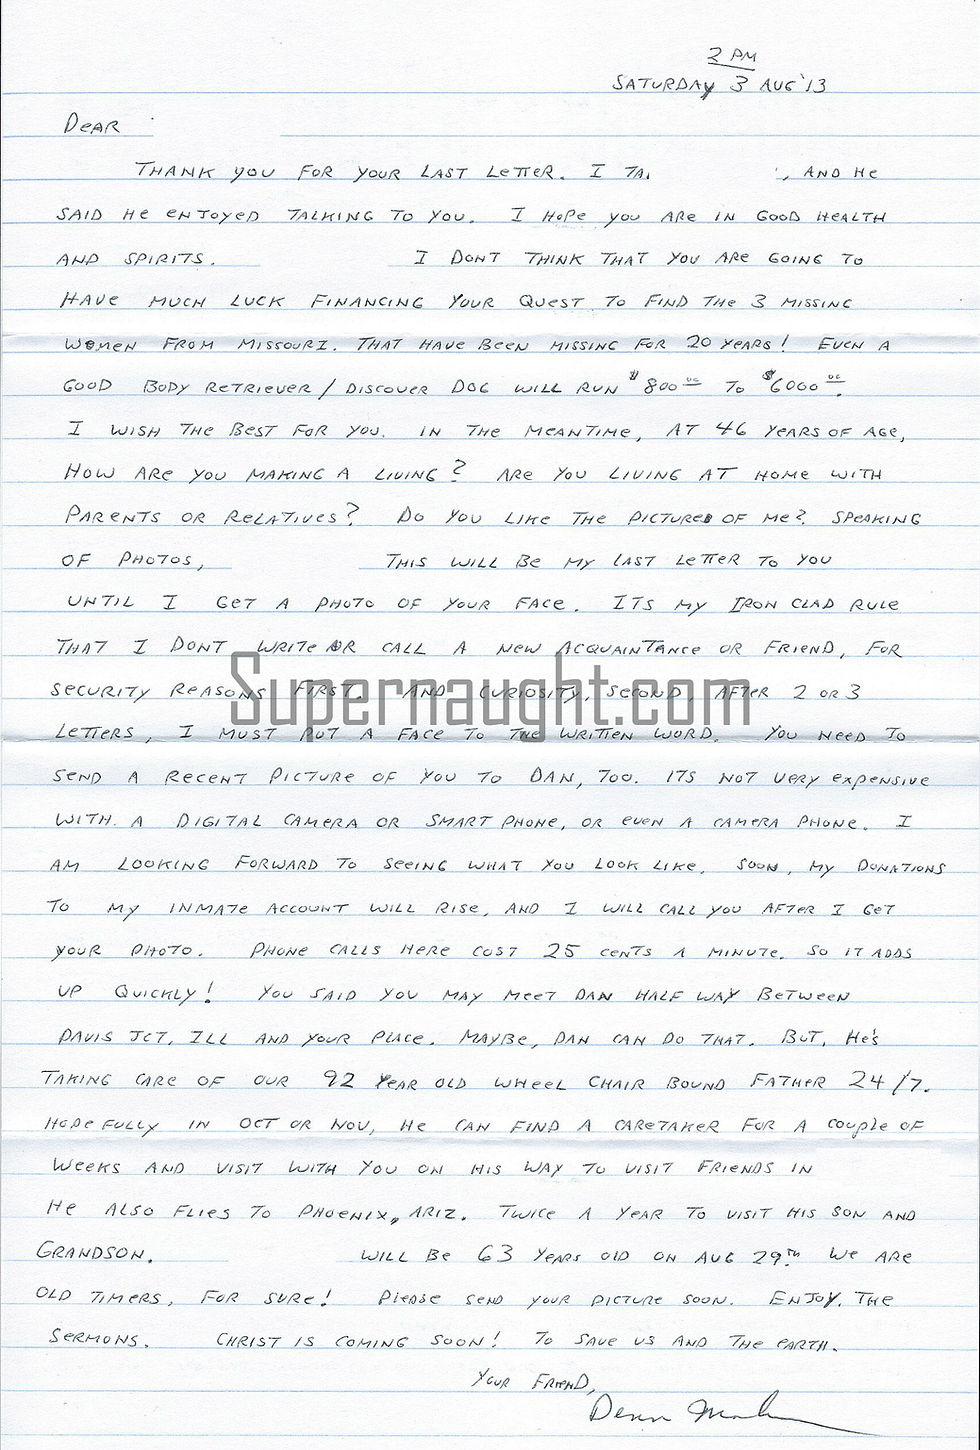 2 PM
SATURDAY 3 AUG '13
DEAR
THANK YOU FOR YOUR LAST LETTER. I TA , AND HE
SAID HE ENJOYED TALKING TO YOU. I HOPE YOU ARE IN GOOD HEALTH
AND SPIRITS. I DONT THINK THAT YOU ARE GOING TO
HAVE MUCH LUCK FINANCING YOUR QUEST TO FIND THE 3 MISSING
WOMEN FROM MISSOURI. THAT HAVE BEEN MISSING FOR 20 YEARS! EVEN A
GOOD BODY RETRIEVER/DISCOVER DOG WILL RUN $800 00 TO $6000 00.
I WISH THE BEST FOR YOU. IN THE MEANTIME, AT 46 YEARS OF AGE,
HOW ARE YOU MAKING A LIVING? ARE YOU LIVING AT HOME WITH
PARENTS OR RELATIVES? DO YOU LIKE THE PICTURES OF ME? SPEAKING
OF PHOTOS, THIS WILL BE MY LAST LETTER TO YOU
UNTIL I GET A PHOTO OF YOUR FACE. ITS MY IRON CLAD RULE
THAT I DONT WRITE OR CALL A NEW ACQUAINTANCE OR FRIEND, FOR
SECURITY REASONS FIRST. AND CURIOSITY, SECOND, AFTER 2 OR 3
Supernaught.com
LETTERS, I MUST PUT A FACE TO THE WRITTEN WORD. YOU NEED TO
SEND A RECENT PICTURE OF YOU TO DAN, TOO. ITS NOT VERY EXPENSIVE
WITH A DIGITAL CAMERA OR SMART PHONE, OR EVEN A CAMERA PHONE. I
AM LOOKING FORWARD TO SEEING WHAT YOU LOOK LIKE. SOON, MY DONATIONS
TO MY INMATE ACCOUNT WILL RISE, AND I WILL CALL YOU AFTER I GET
YOUR PHOTO. PHONE CALLS HERE COST 25 CENTS A MINUTE. SO IT ADDS
UP QUICKLY! YOU SAID YOU MAY MEET DAN HALF WAY BETWEEN
DAVIS JCT, ILL AND YOUR PLACE. MAYBE, DAN CAN DO THAT. BUT, HE'S
TAKING CARE OF OUR 92 YEAR OLD WHEEL CHAIR BOUND FATHER 24/7.
HOPEFULLY IN OCT OR NOV, HE CAN FIND A CARETAKER FOR A COUPLE OF
WEEKS AND VISIT WITH YOU ON HIS WAY TO VISIT FRIENDS IN
HE ALSO FLIES TO PHOENIX, ARIZ. TWICE A YEAR TO VISIT HIS SON AND
GRANDSON. WILL BE 63 YEARS OLD ON AUG 29TH. WE ARE
OLD TIMERS, FOR SURE! PLEASE SEND YOUR PICTURE SOON. ENJOY THE
SERMONS. CHRIST IS COMING SOON! TO SAVE US AND THE EARTH.
YOUR FRIEND,